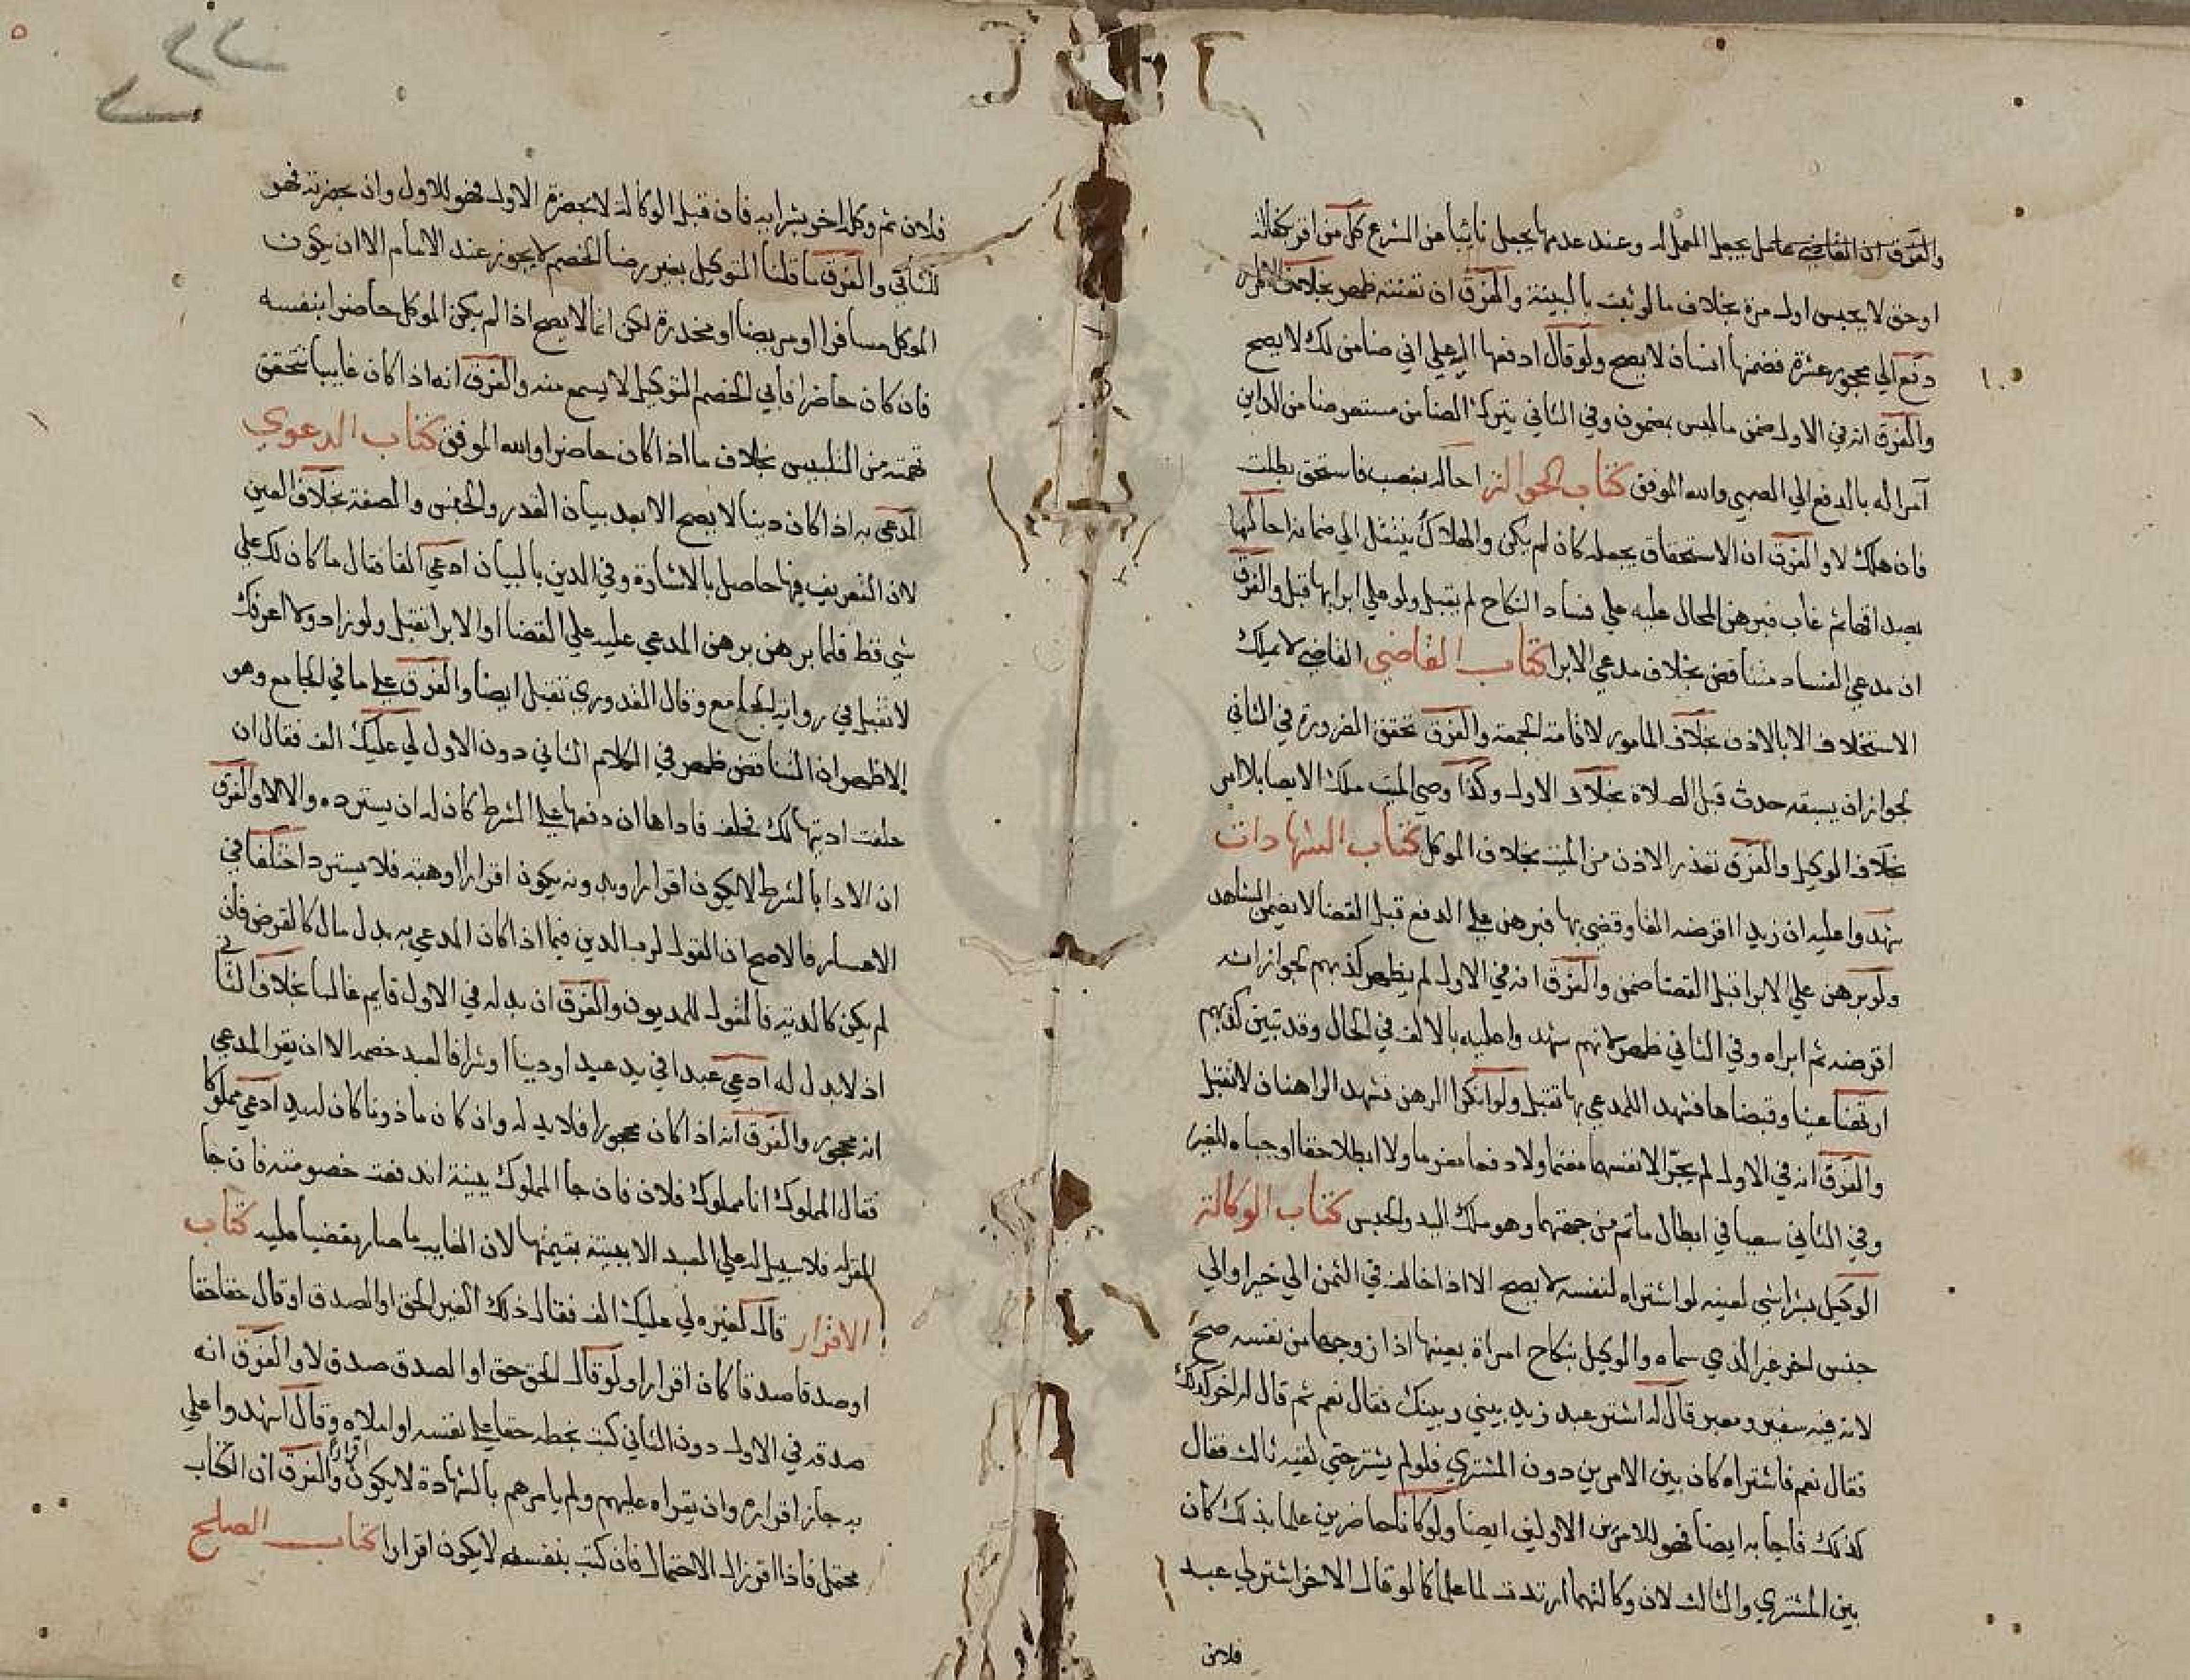 والفرق ان القاضي عامل يجعل العمل له وعند عدمها يجعل نائبا من الشرع كل من اقر بكفالة
او حق لا يحبس اول مرة بخلاف ما لو ثبت بالبينة والفرق ان تعنته ظهر بخلاف الاقرار
دفع الي محجور عشرة فضمنها انسان لا يصح ولو قال ادفعها اليه علي اني ضامن لك لا يصح
والفرق انه في الاول ضمن ما ليس بمضمون وفي الثاني يترك الضامن مستقرضا من الداين
آمرا له بالدفع الي الصبي والله الموفق كتاب الحوالة احاله بغصب فاستحق بطلت
فان هلك لا والفرق ان الاستحقاق يجعله كان لم يكن والهلاك ينتقل الي ضمانه احالتها
بصداقها ثم غاب فبرهن المحال عليه علي فساد النكاح لم يقبل ولو علي ابرايها قبل والفرق
ان مدعي الفساد متناقض بخلاف مدعي الابرا كتاب القاضي القاضي لا يملك
الاستخلاف الا بالاذن بخلاف المامور لاقامة الجمعة والفرق تحقق الضرورة في الثاني
لجواز ان يسبقه حدث قبل الصلاة بخلاف الاول وكذا وصي الميت ملك الايصا بلا امر
بخلاف الوكيل والفرق تعذر الاذن من الميت بخلاف الموكل كتاب الشهادات
شهدوا عليه ان زيدا اقرضه الفا وقضي بها فبرهن علي الدفع قبل القضا لا يضمن الشاهد
ولو برهن علي الابرا قبل القضا ضمن والفرق انه في الاول لم يظهر كذبهم لجواز انه
اقرضه ثم ابراه وفي الثاني ظهر لانهم شهدوا عليه بالالف في الحال وقد تبين كذبهم
ارتهنا عينا وقبضاها فشهدا للمدعي بها تقبل ولو انكرا الرهن فشهد الراهنان لا تقبل
والفرق انه في الاول لم يجرا لانفسهما مغنما ولا دفعا مغرما ولا ابطلا حقا اوجباه للغير
وفي الثاني سعيا في ابطال ما تم من جهتهما وهو ملك اليد والحبس كتاب الوكالة
الوكيل بشرا شي لعينه لو اشتراه لنفسه لا يصح الا اذا خالف في الثمن الي خير او الي
جنس اخر غير الذي سماه والوكيل بنكاح امراة بعينها اذا زوجها من نفسه صح
لانه فيه سفير ومعبر قال له اشتر عبد زيد بيني وبينك فقال نعم ثم قال له اخر كذلك
فقال نعم فاشتراه كان بين الامرين دون المشتري فلو لم يشتر حتي لقيه ثالث فقال
كذلك فاجابه ايضا فهو للامرين الاولين ايضا ولو كانا حاضرين علما بذلك كان
بين المشتري والثالث لان وكالتهما ارتدت لما علما كما لو قال الاخر اشتر لي عبد
فلان
فلان ثم وكله اخر بشرايه فان قبل الوكالة لا بحضرة الاول فهو للاول وان بحضرته فهو
للثاني والفرق ما قلنا التوكيل بغير رضا الخصم لا يجوز عند الامام الا ان يكون
الموكل مسافرا او مريضا او مخدرة لكن انما لا يصح اذا لم يكن الموكل حاضرا بنفسه
فان كان حاضرا فابي الخصم التوكيل لا يسمع منه والفرق انه اذا كان غايبا تتحقق
تهمته من التلبيس بخلاف ما اذا كان حاضرا والله الموفق كتاب الدعوي
المدعي به اذا كان دينا لا يصح الا بعد بيان القدر والجنس والصفة بخلاف العين
لان التعريف فيها حاصل بالاشارة وفي الدين بالبيان ادعي الفا فقال ما كان لك علي
شي قط فلما برهن برهن المدعي عليه علي القضا او الابرا تقبل ولو زاد ولا اعرفك
لا تقبل في رواية الجامع وقال القدوري تقبل ايضا والفرق علي ما في الجامع وهو
الاظهر ان التناقض ظهر في الكلام الثاني دون الاول لي عليك الف فقال ان
حلفت اديتها لك فحلف فاداها ان دفعها علي الشرط كان له ان يسترده والا لا والفرق
ان الادا بالشرط لا يكون اقرارا وبدونه يكون اقرارا وهبة فلا يسترد اختلفا في
الاعسار فالاصح ان القول لرب الدين فيما اذا كان المدعي به بدل مال كالقرض فان
لم يكن كالدية فالقول للمديون والفرق ان بدله في الاول قايم غالبا بخلاف الثاني
اذ لا بدل له ادعي عبدا في يد عبد او دينا او شرا فالعبد خصمه الا ان يقر المدعي
انه محجور والفرق انه اذا كان محجورا فلا يد له وان كان ماذونا كان له يد ادعي مملوكا
فقال المملوك انا مملوك فلان فان جا المملوك ببينة اندفعت خصومته فان جا
المقر له فلا سبيل له علي العبد الا ببينة يقيمها لان الغايب ما صار مقضيا عليه كتاب
الاقرار قال لغيره لي عليك الف فقال ذلك الغير الحق او الصدق او قال حقا حقا
او صدقا صدقا كان اقرارا ولو قال الحق حق او الصدق صدق لا والفرق انه
صدقه في الاول دون الثاني كتب بخطه حقا علي نفسه او املاه وقال اشهدوا علي
به جاز اقراره وان يقراه عليهم ولم يامرهم بالشهادة لا يكون اقرارا والفرق ان الكتاب
محتمل فاذا اقر زال الاحتمال فان كتب بنفسه لا يكون اقرارا كتاب الصلح